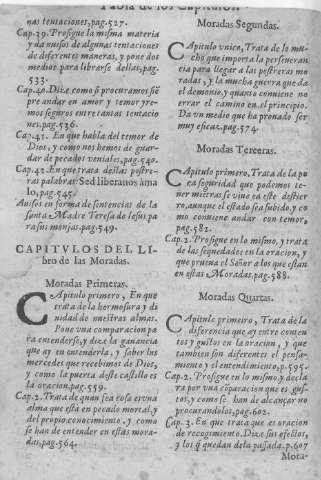 Tabla de los Capitulos
nas tentaciones, pag. 527.
Cap. 39. Prosigue la misma materia
y da auisos de algunas tentaciones
de diferentes maneras, y pone dos
medios para librarse dellas, pag.
533.
Cap. 40. Dize como si procuramos siẽ
pre andar en amor y temor yre-
mos seguros entre tantas tentacio
nes, pag. 536.
Cap. 41. En que habla del temor de
Dios, y como nos hemos de guar-
dar de pecados veniales, pag. 540.
Cap. 42. En que trata destas postre-
ras palabras: Sed liberanos à ma
lo, pag. 545.
Auisos en forma de sentencias de la
santa Madre Teresa de Iesus pa
ra sus monjas. pag. 549.
CAPITVLOS DEL LI-
bro de las Moradas.
Moradas Primeras.
CApitulo primero, En que
trata de la hermosura y di
nidad de nuestras almas.
Pone vna comparacion pa
ra entenderse, y dize la ganancia
que ay en entenderla, y saber las
mercedes que recebimos de Dios,
y como la puerta deste castillo es
la oracion. pag. 559.
Cap. 2. Trata de quan fea cosa es vna
alma que està en pecado mortal, y
del propio conocimiento, y como
se han de entender en estas mora-
das, pag. 564.
Moradas Segundas.
CApitulo vnico, Trata de lo mu-
cho que importa la perseueran
cia para llegar a las postreras mo
radas, y la mucha guerra que da
el demonio, y quanto conuiene no
errar el camino en el principio.
Da vn medio que ha prouado ser
muy eficaz. pag. 574.
Moradas Terceras.
CApitulo primero, Trata de la po
ca seguridad que podemos te-
ner mientras se viue en este destier
ro, aunque el estado sea subido, y co
mo conuiene andar con temor,
pag. 582.
Cap. 2. Prosigue en lo mismo, y trata
de las sequedades en la oracion, y
que prueua el Señor a los que estan
en estas Moradas. pag. 588.
Moradas Quartas.
CApitulo primero, Trata de la
diferencia que ay entre conten
tos y gustos en la oracion, y que
tambien son diferentes el pensa-
miento y el entendimiento, p. 595.
Cap. 2. Prosigue en lo mismo, y decla
ra por vna cõparacion que es gus-
tos, y como se han de alcançar no
procurandolos, pag. 602.
Cap. 3. En que trata que es oracion
de recogimiento. Dize sus efectos,
y los q̃ quedan de la passada. p. 607
Mora-